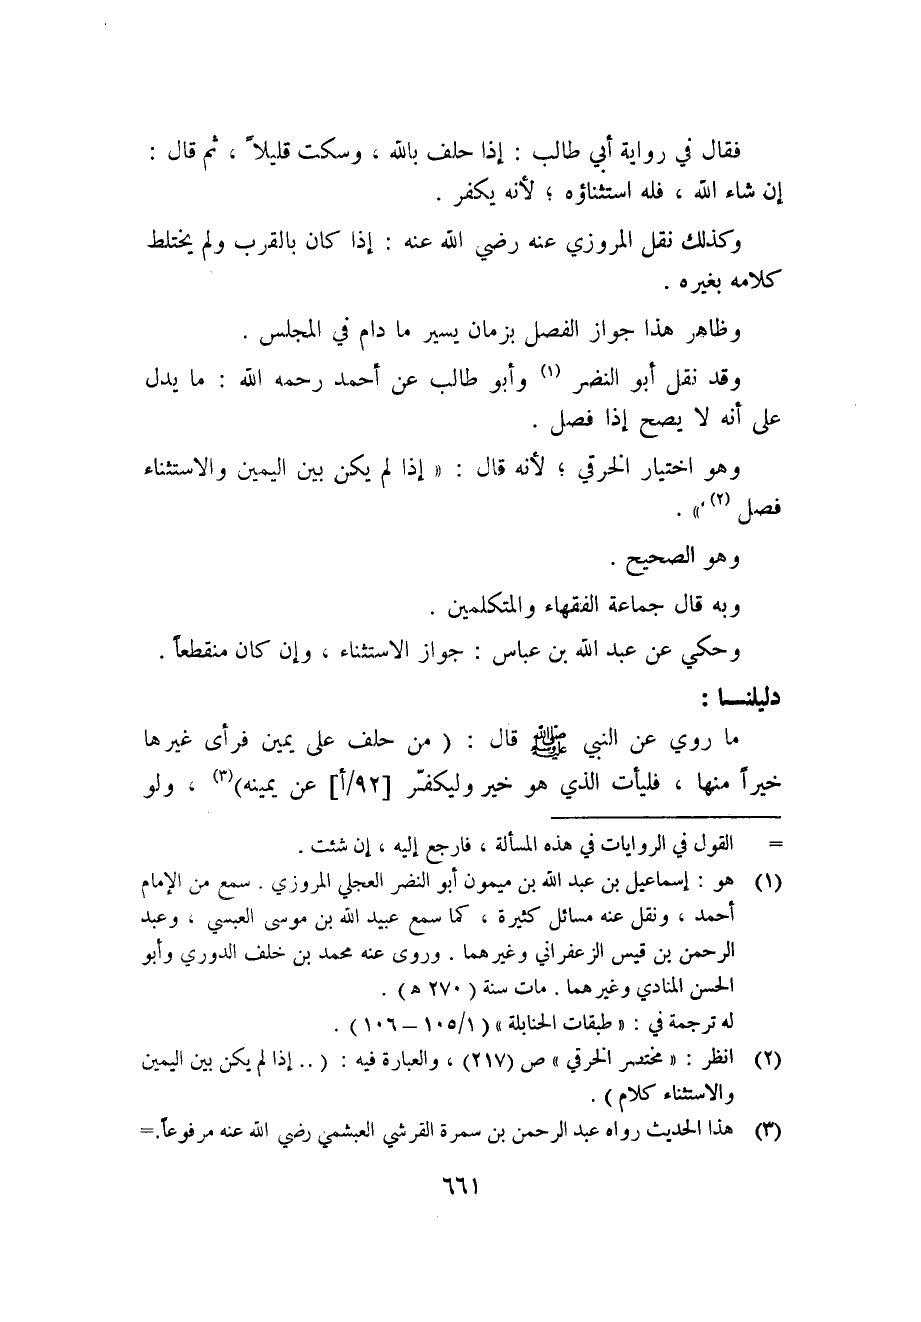 فقال في رواية أبي طالب : إذا حلف بالله ، وسكت قليلاً ، ثم قال :
إن شاء الله ، فله استثناؤه ؛ لأنه يكفر .
وكذلك نقل المروزي عنه رضي الله عنه : إذا كان بالقرب ولم يختلط
كلامه بغيره .
وظاهر هذا جواز الفصل بزمان يسير ما دام في المجلس .
وقد نقل أبو النضر (١) وأبو طالب عن أحمد رحمه الله : ما يدل
على أنه لا يصح إذا فصل .
وهو اختيار الخرقي ؛ لأنه قال : « إذا لم يكن بين اليمين والاستثناء
فصل (٢) » .
وهو الصحيح .
وبه قال جماعة الفقهاء والمتكلمين .
وحكي عن عبد الله بن عباس : جواز الاستثناء ، وإن كان منقطعاً .
دليلنــا :
ما روي عن النبي ﷺ قال : ( من حلف على يمين فرأى غيرها
خيراً منها ، فليأت الذي هو خير وليكفّر [٩٢/أ] عن يمينه)(٣) ، ولو
= القول في الروايات في هذه المسألة ، فارجع إليه ، إن شئت .
(١) هو : إسماعيل بن عبد الله بن ميمون أبو النضر العجلي المروزي . سمع من الإمام
أحمد ، ونقل عنه مسائل كثيرة ، كما سمع عبيد الله بن موسى العبسي ، وعبد
الرحمن بن قيس الزعفراني وغيرهما . وروى عنه محمد بن خلف الدوري وأبو
الحسن المنادي وغيرهما . مات سنة ( ٢٧٠ ه ) .
له ترجمة في : « طبقات الحنابلة » ( ١٠٥/١ – ١٠٦ ) .
(٢) انظر : « مختصر الخرقي » ص (٢١٧) ، والعبارة فيه : ( .. إذا لم يكن بين اليمين
والاستثناء كلام ) .
(٣) هذا الحديث رواه عبد الرحمن بن سمرة القرشي العبشمي رضي الله عنه مرفوعاً.=
٦٦١